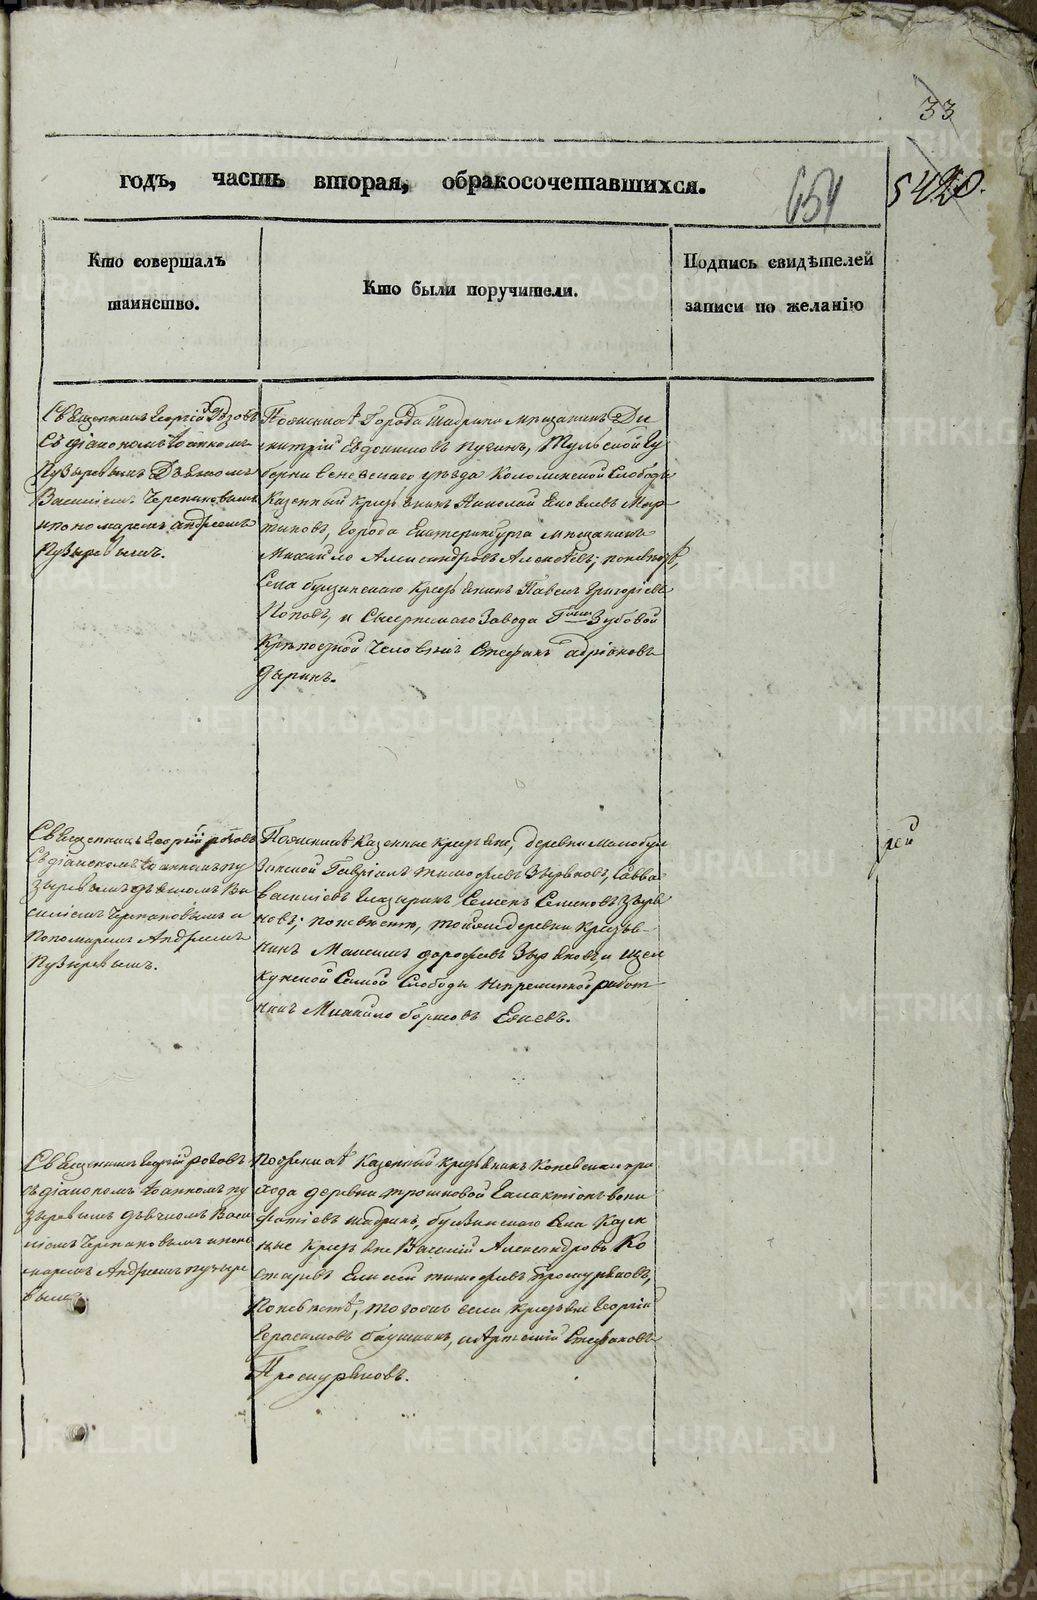 33
годъ, часть вторая, о бракосочетавшихся.
654
5420.
Кто совершалъ
таинство.
Кто были поручители.
Подпись свидѣтелей
записи по желанію
Священникъ Георгій
Съ діакономъ Іоанномъ
Пузыревымъ Дьячкомъ
Василіемъ Черепановымъ
и пономаремъ Андреемъ
Пузыревымъ.
По женихѣ Города Шадрина мѣщанинъ Ди
митрій Евдокимовъ Пугинъ, Тульской Гу
берніи Веневскаго уѣзда Коломенской Слободы
Казенный Крестьянинъ Николай Яковлевъ Мар
тиновъ, Города Екатеринбурга мѣщанинъ
Михайло Александровъ по невѣстѣ,
Села Крестьянинъ Павелъ Григорьевъ
Поповъ, и Сысертскаго Завода Гжи Зубовой
Крѣпостной Человѣкъ Стефанъ Адріановъ
Священникъ Георгій
Съ діакономъ Іоанномъ Пу
зыревымъ дьячкомъ Ва
силіемъ Черепановымъ и
Пономаремъ Андреемъ
Пузыревымъ.
По женихѣ Казенные Крестьяне, деревни Малобул
зинской Гавріилъ Тимофеевъ Зыряновъ, Савва
Василіевъ Глазыринъ Семенъ Семеновъ Зыря
новъ; по невѣстѣ, тойже деревни Крестья-
нинъ Максимъ Дорофеевъ Зыряновъ и Щел
кунской Слободы Непремѣнной работ
никъ Михайло Борисовъ
рей
Священникъ Георгій
Съ діакономъ Іоанномъ Пу
зыревымъ дьячкомъ Васи
ліемъ Черепановымъ и поно
маремъ Андреемъ Пузыре
вымъ.
По женихѣ Казенный Крестьянинъ Коневскаго при
хода деревни Трошковой Галактіонъ Вони
фатіевъ Шадринъ, Булзинскаго Села Казен
ные Крестьяне Василій Александровъ Ко
старевъ Елисей Тимофеевъ Проскуряковъ,
По невѣстѣ, тогожъ села Крестьяне Георгій
Герасимовъ и Артемій Стефановъ
Проскуряковъ.